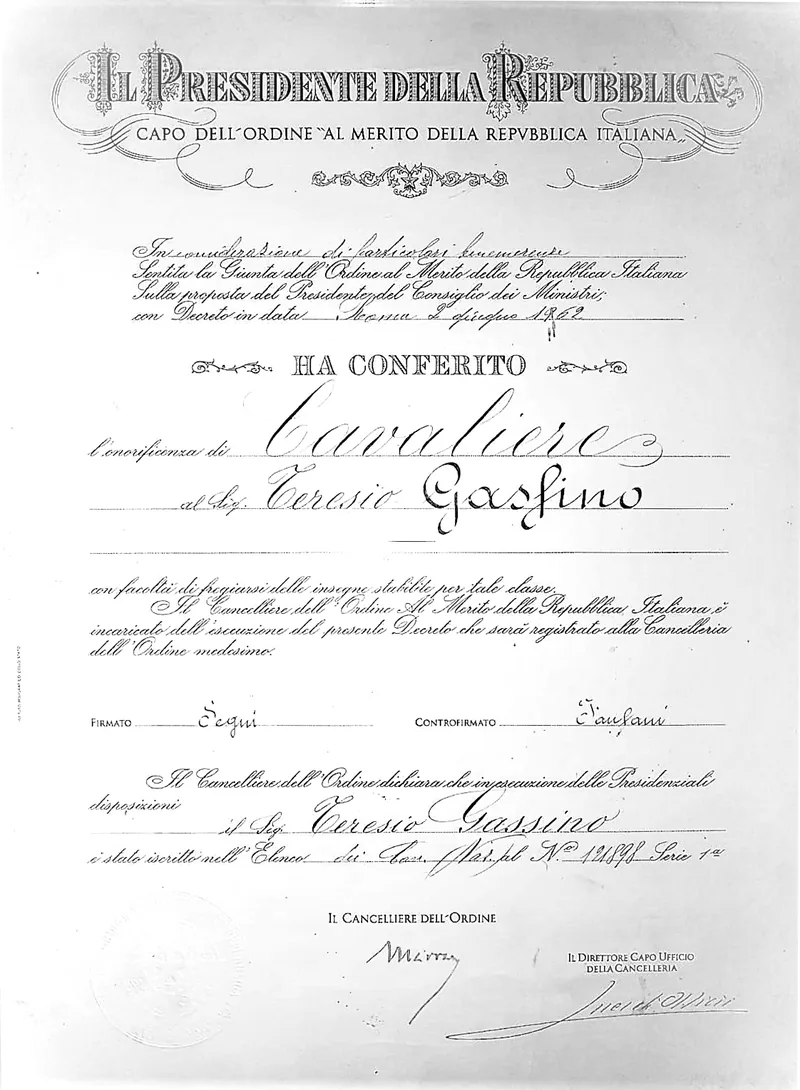 IL PRESIDENTE DELLA REPUBBLICA
CAPO DELL'ORDINE "AL MERITO DELLA REPVBBLICA ITALIANA„
In considerazione di particolari benemerenze
Sentita la Giunta dell'Ordine al Merito della Repubblica Italiana
Sulla proposta del Presidente del Consiglio dei Ministri;
con Decreto in data Roma 2 giugno 1962
HA CONFERITO
l'onorificenza di Cavaliere
al Sig. Teresio Gassino
con facoltà di fregiarsi delle insegne stabilite per tale classe.
Il Cancelliere dell'Ordine Al Merito della Repubblica Italiana è
incaricato dell'esecuzione del presente Decreto che sarà registrato alla Cancelleria
dell'Ordine medesimo.
FIRMATO Segni CONTROFIRMATO Fanfani
Il Cancelliere dell'Ordine dichiara che in esecuzione delle Presidenziali
disposizioni
il Sig. Teresio Gassino
è stato iscritto nell'Elenco dei Cav. Naz. al N.º 121898 Serie 1ª
IL CANCELLIERE DELL'ORDINE
IL DIRETTORE CAPO UFFICIO
DELLA CANCELLERIA